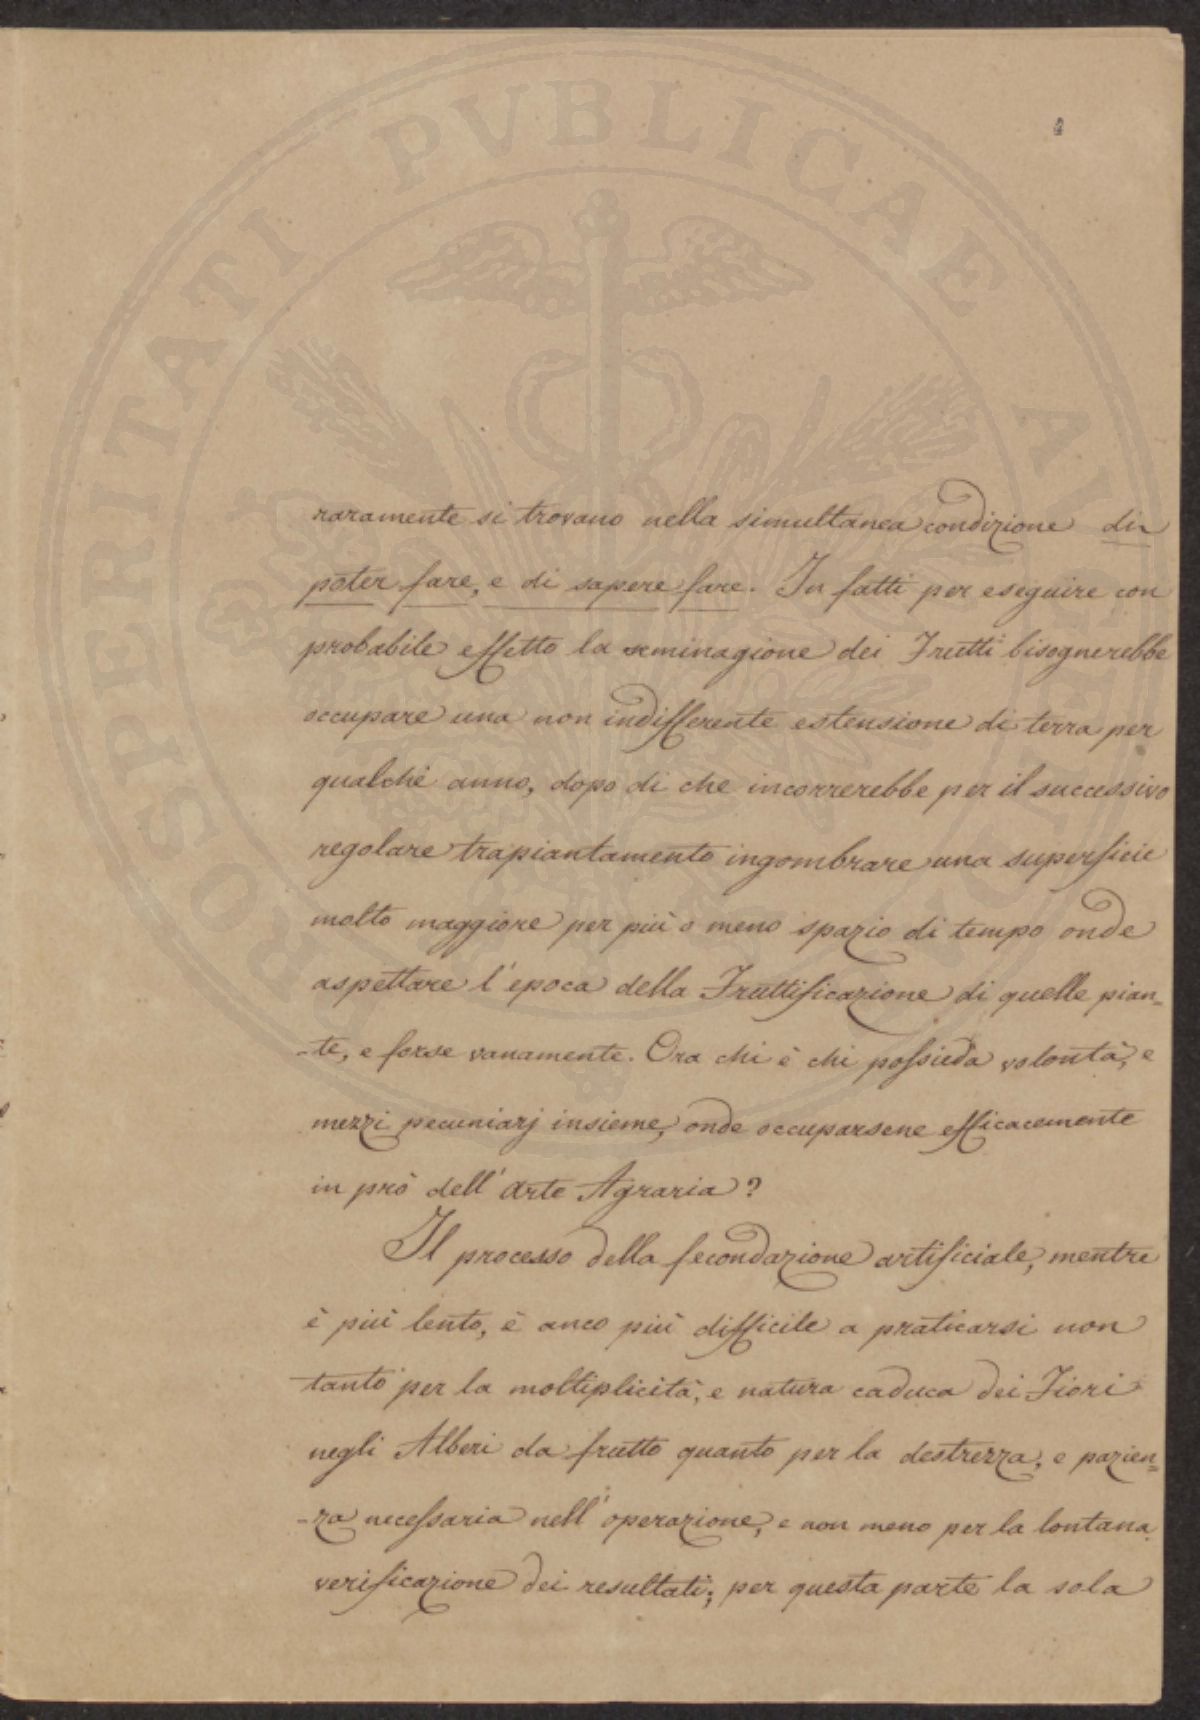 PROSPERITATI PVBLICAE AVGENDAE
raramente si trovano nella simultanea condizione di
poter fare, e di sapere fare. In fatti per eseguire con
probabile effetto la seminagione dei Frutti bisognerebbe
occupare una non indifferente estensione di terra per
qualche anno, dopo di che incorrerebbe per il successivo
regolare trapiantamento ingombrare una superficie
molto maggiore per più o meno spazio di tempo onde
aspettare l'epoca della Fruttificazione di quelle pian=
-te, e forse vanamente. Ora chi è chi possieda volontà, e
mezzi pecuniarj insieme, onde occuparsene efficacemente
in prò dell'arte Agraria?
Il processo della fecondazione artificiale, mentre
è più lento, è anco più difficile a praticarsi non
tanto per la moltiplicità, e natura caduca dei Fiori
negli Alberi da frutto quanto per la destrezza, e pazien=
-za necessaria nell'operazione, e non meno per la lontana
verificazione dei resultati; per questa parte la sola